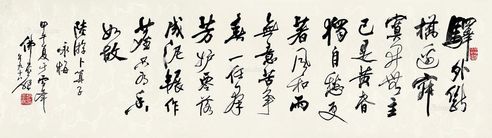 驛外斷
橋邊寂
寞開無主
已是黃昏
獨自愁更
著風和雨
無意苦爭
春一任群
芳妒零落
成泥輾作
塵只有香
如故
陸游卜算子
咏梅
甲午夏